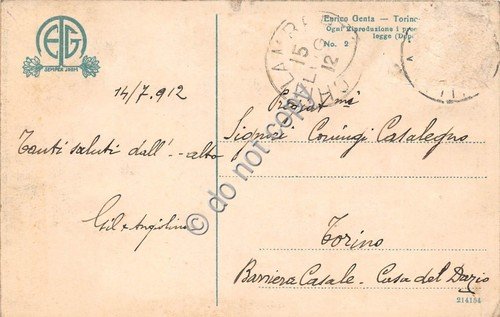 EG
SEMPER IDEM
14/7.912
Tanti saluti dall' - alto
Gil e Angiolino
Enrico Genta - Torino
Ogni riproduzione i proc
legge (Dep
No. 2
15
12
Pregiat mi
Signori Coniugi Casalegno
Torino
Barriera Casale - Casa del Dazio
214184
© do not copy